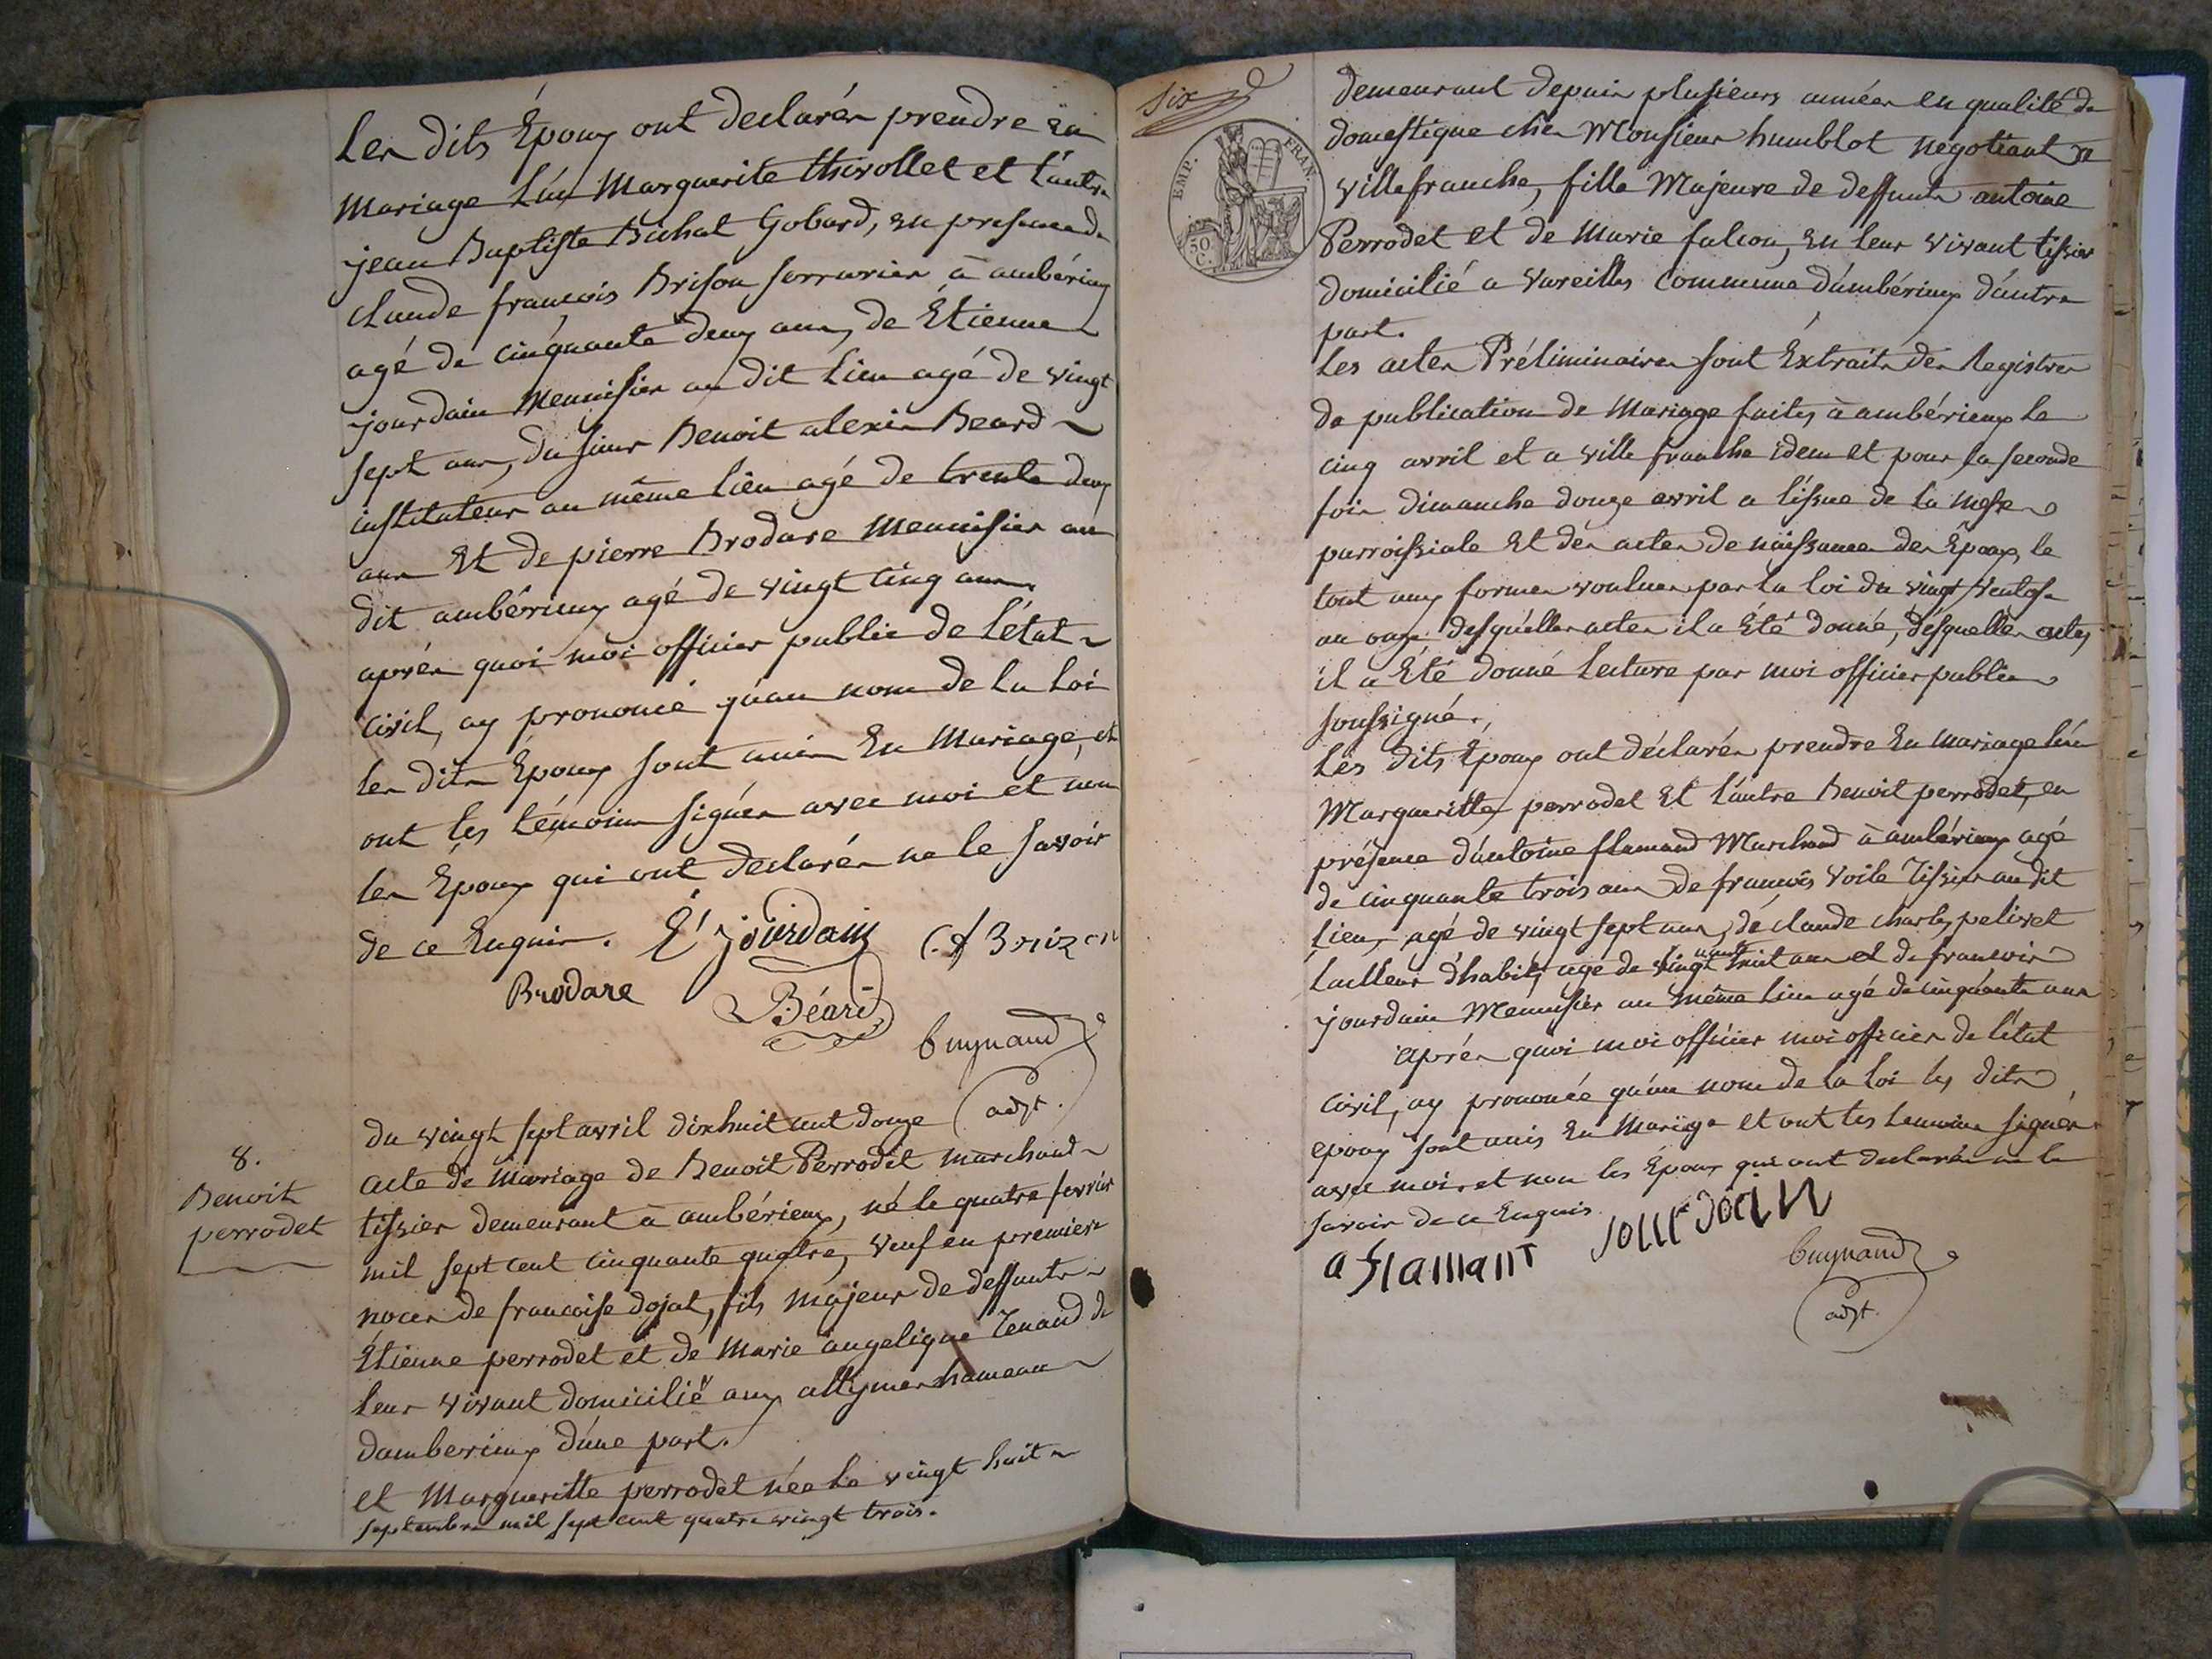 Les dits Époux ont declarés prendre en
mariage L'un Marguerite thivollet et l'autre
jean Baptiste Bichat Gobard, en presence de
claude francois Brison serrurier à ambérieux
agé de cinquante deux ans, de Étienne
jourdain Menuisier au dit Lieu agé de vingt
sept ans, du sieur Benoit alexis Beard
instituteur au même lieu agé de trente deux
ans Et de pierre Brodare Menuisier au
dit ambérieux agé de vingt cinq ans
aprés quoi moi officier public de L'état
Civil, ay prononcé qu'au nom de la Loi
les dits Époux sont unis En Mariage, et
ont les témoins signés avec moi et non
les Époux qui ont declarés ne le savoir
de ce Enquis. Et jourdain C. f Brizon
Brodare Béard
Guynand
adjt.
8.
Benoit
perrodet
du vingt sept avril dix huit cent douze
acte de Mariage de Benoit Perrodet marchand
tissier demeurant à ambérieux, né le quatre fevrier
mil sept cent cinquante quatre, veuf en premiere
noces de francoise dojat, fils majeur de deffunts
Étienne perrodet et de Marie angelique Tenand de
leur vivant domicilié aux allymes hameau
damberieux d'une part.
et Margueritte perrodet née le vingt huit
septembre mil sept cent quatre vingt trois.
six
EMP. FRAN.
50 C.
demeurant depuis plusieurs années en qualité de
domestique chés Monsieur humblot négotiant a
villefranche, fille Majeure de deffunts antoine
Perrodet et de Marie falcon, en leur vivant tissier
domicilié a Vareilles Commune d'ambérieux d'autre
part.
Les actes Préliminaires sont Éxtraits des Registres
de publication de Mariage faites à ambérieux le
cinq avril et a ville franche idem et pour la seconde
fois dimanche douze avril a l'issue de la Messe
parroissiale Et des actes de naissance des Époux, le
tout aux formes voulues par la loi du vingt Ventose
an onze desquelles actes il a Été donné, desquelles actes
il a Été donné Lecture par moi officier public
soussigné.
Les dits Époux ont déclarés prendre En mariage l'un
Margueritte perrodet Et l'autre Benoit perrodet, en
présence d'antoine flamand Marchand à ambérieux agé
de cinquante trois ans de francois Voile Tissier au dit
Lieu, agé de vingt sept ans, de claude charles pelivet
tailleur d'habits, agé de vingt huit ans et de francois
jourdain Menuisier au même lieu agé de cinquante ans
aprés quoi moi officier moi officier de l'état
Civil, ay prononcé qu'au nom de la Loi les dits
epoux sont unis En Mariage et ont les temoins signés
avec moi et non les Époux qui ont declarés ne le
savoir de ce Enquis.
a flamant jourdain
Guynand
adjt.